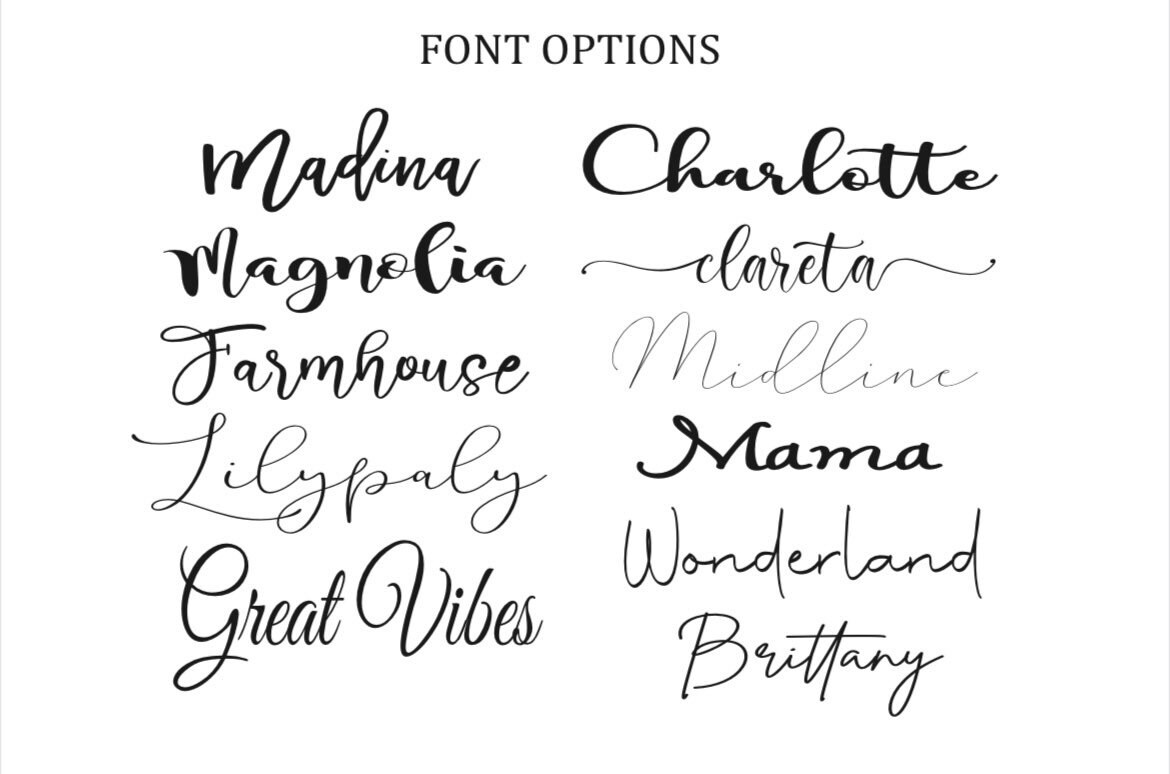 FONT OPTIONS
Madina
Magnolia
Farmhouse
Lilypaly
Great Vibes
Charlotte
clareta
Midline
Mama
Wonderland
Brittany